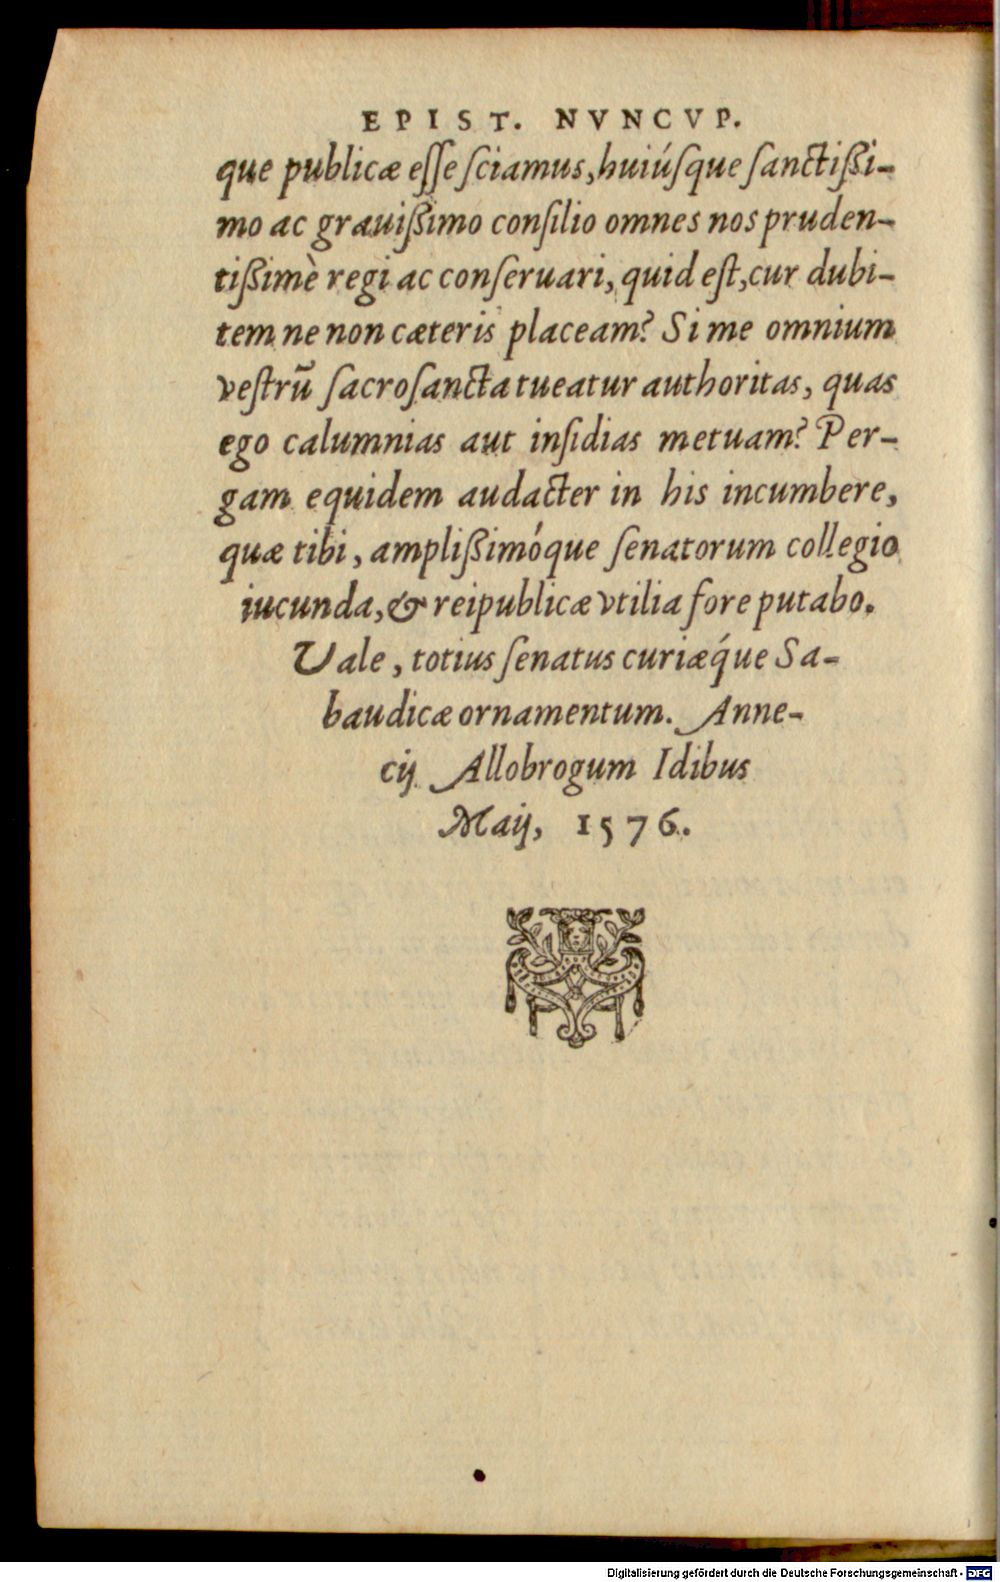 EPIST. NVNCVP.
que publicæ eſſe ſciamus, huiúſque ſanctißi-
mo ac grauißimo conſilio omnes nos pruden-
tißimè regi ac conſeruari, quid eſt, cur dubi-
tem ne non cæteris placeam? Si me omnium
veſtrũ ſacroſancta tueatur authoritas, quas
ego calumnias aut inſidias metuam? Per-
gam equidem audacter in his incumbere,
quæ tibi, amplißimóque ſenatorum collegio
iucunda, & reipublicæ vtilia fore putabo.
Vale, totius ſenatus curiæq́ue Sa-
baudicæ ornamentum. Anne-
cij Allobrogum Idibus
Maij, 1576.
Digitalisierung gefördert durch die Deutsche Forschungsgemeinschaft - DFG